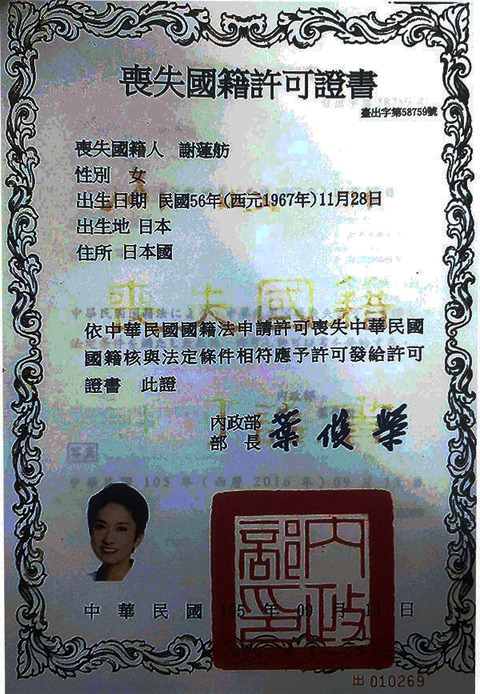 喪失國籍許可證書
臺出字第58759號
喪失國籍人 謝蓮舫
性別 女
出生日期 民國56年(西元1967年)11月28日
出生地 日本
住所 日本國
喪失國籍
依中華民國國籍法申請許可喪失中華民國
國籍核與法定條件相符應予許可發給許可
證書 此證
內政部
部長 葉俊榮
写真
中華民國 105 年 (西暦 2016 年) 09 月 13 日
內政部印
中華民國 105 年 09 月 13 日
出 010269